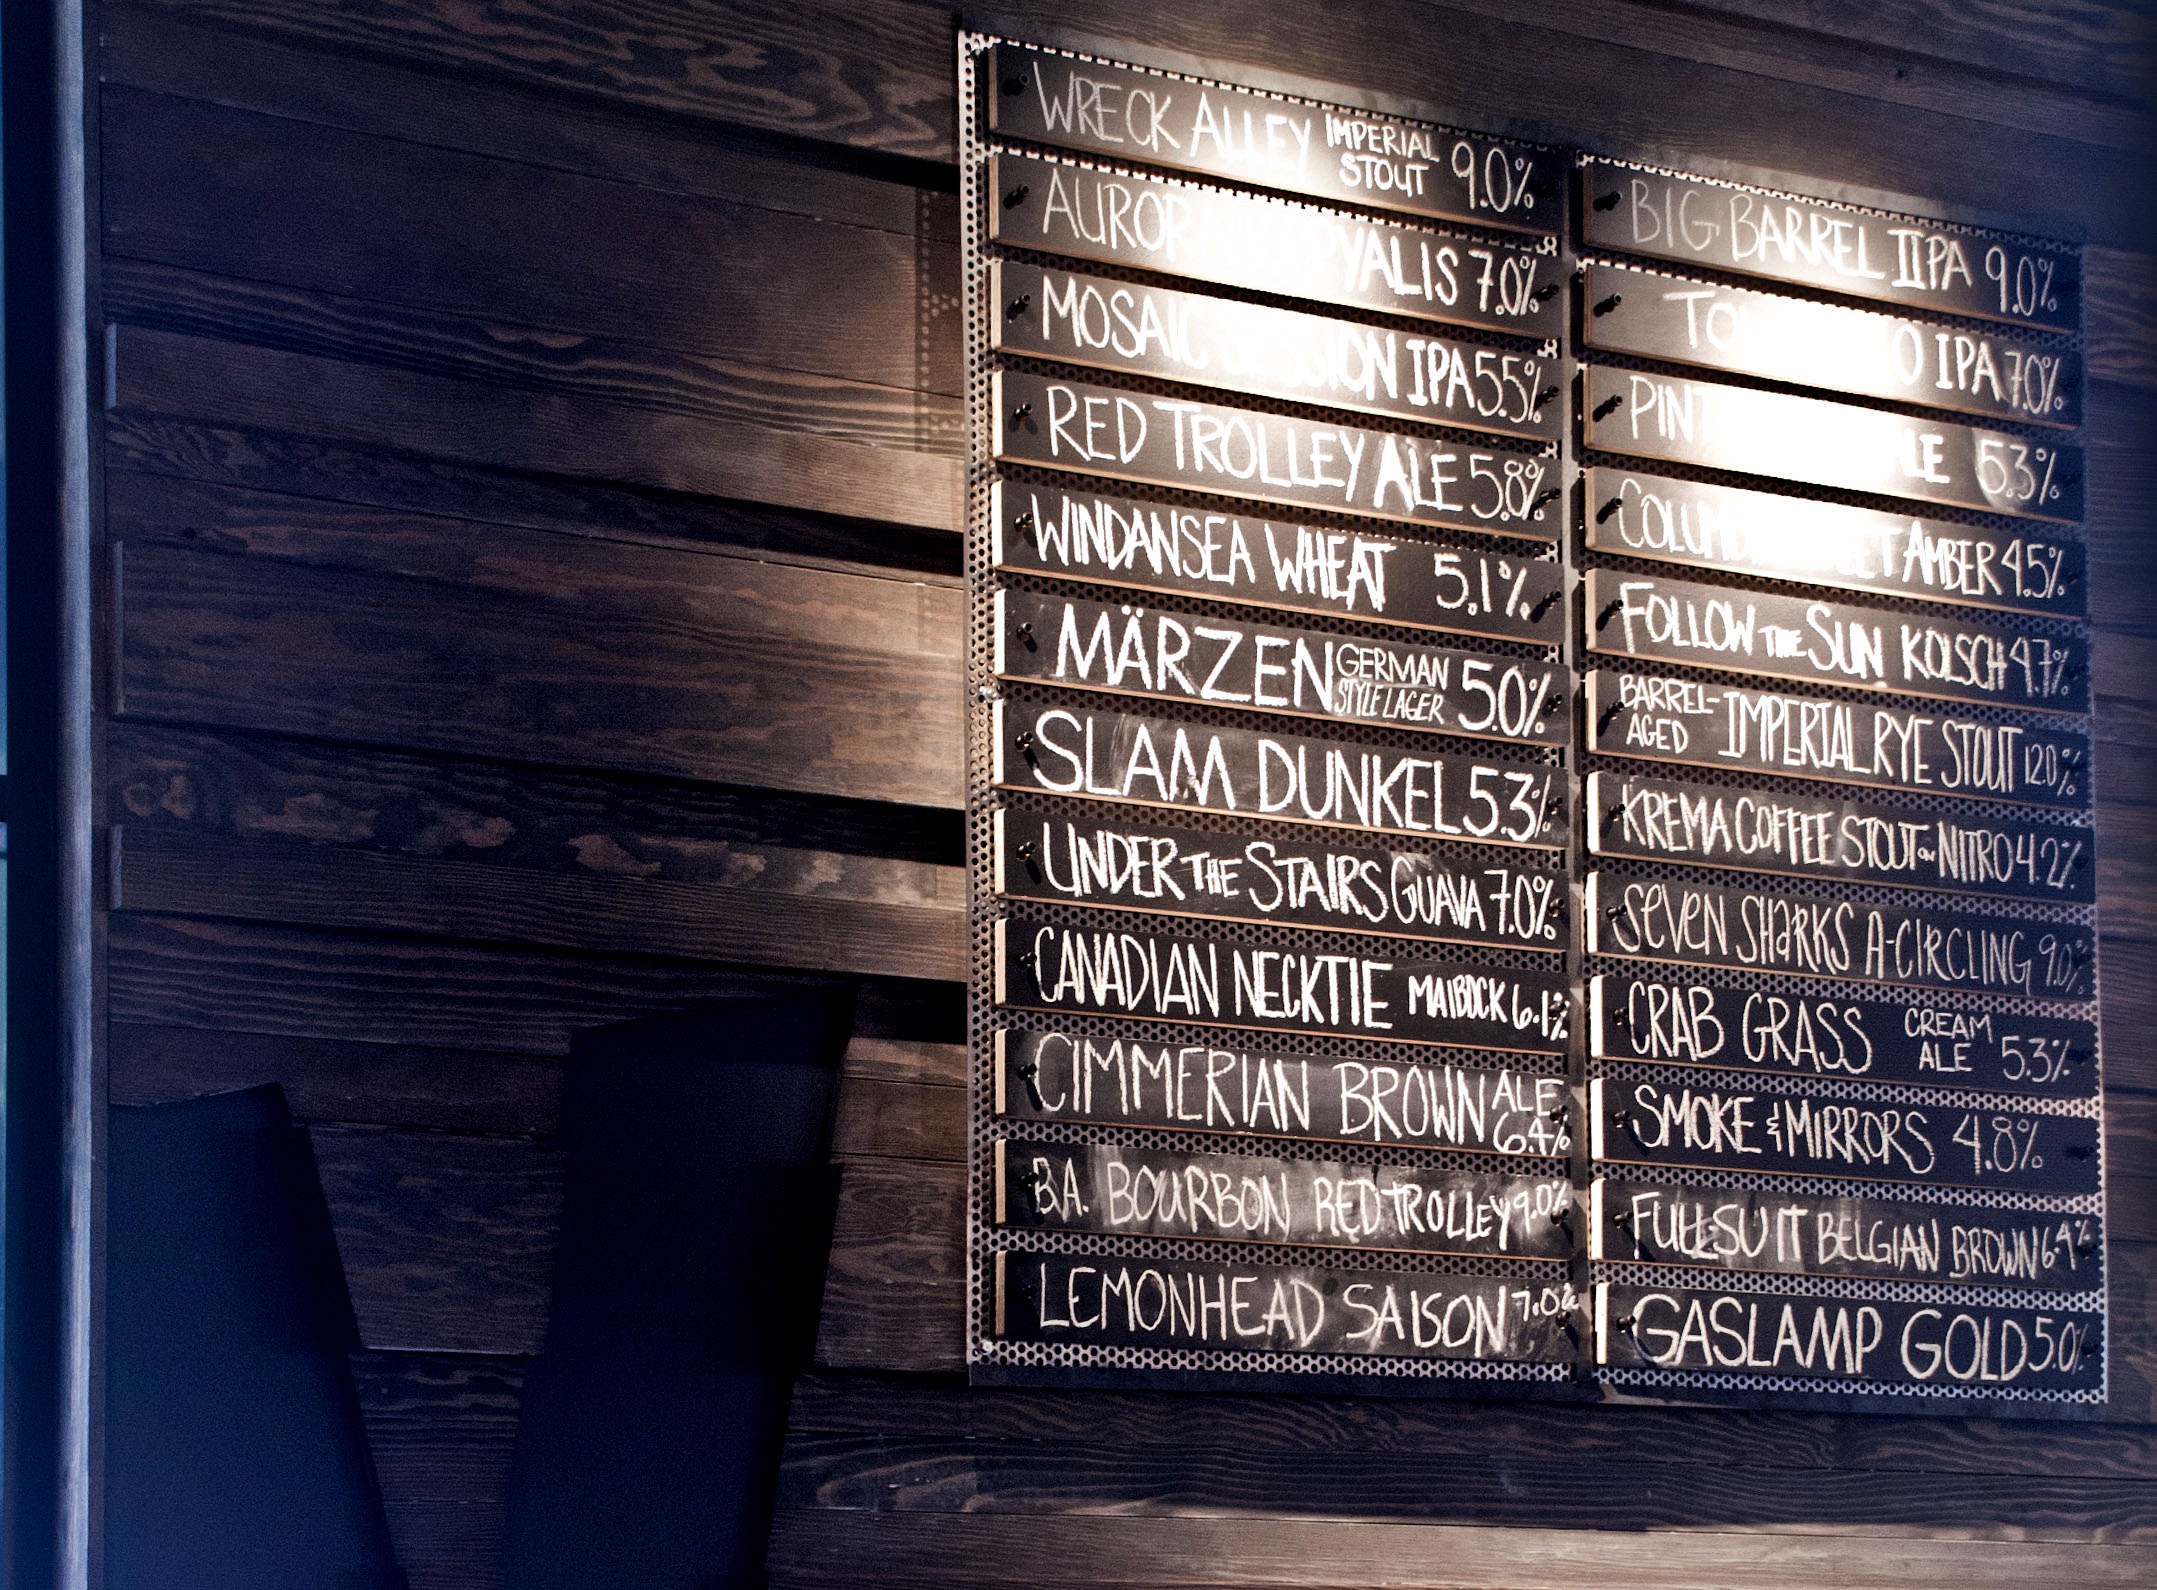 WRECK ALLEY IMPERIAL STOUT 9.0%
7.0%
MOSAIC SESSION IPA 5.5%
RED TROLLEY ALE 5.8%
WINDANSEA WHEAT 5.1%
MÄRZEN GERMAN STYLE LAGER 5.0%
SLAM DUNKEL 5.3%
UNDER THE STAIRS GUAVA 7.0%
CANADIAN NECKTIE MAIBOCK 6.1%
CIMMERIAN BROWN ALE 6.4%
B.A. BOURBON RED TROLLEY 9.0%
LEMONHEAD SAISON 7.0%
BIG BARREL IIPA 9.0%
IPA 7.0%
5.3%
AMBER 4.5%
FOLLOW THE SUN KOLSCH 4.7%
BARREL-AGED IMPERIAL RYE STOUT 12.0%
KREMA COFFEE STOUT ON NITRO 4.2%
SEVEN SHARKS A-CIRCLING 9.0%
CRAB GRASS CREAM ALE 5.3%
SMOKE & MIRRORS 4.8%
FULL SUIT BELGIAN BROWN 6.4%
GASLAMP GOLD 5.0%